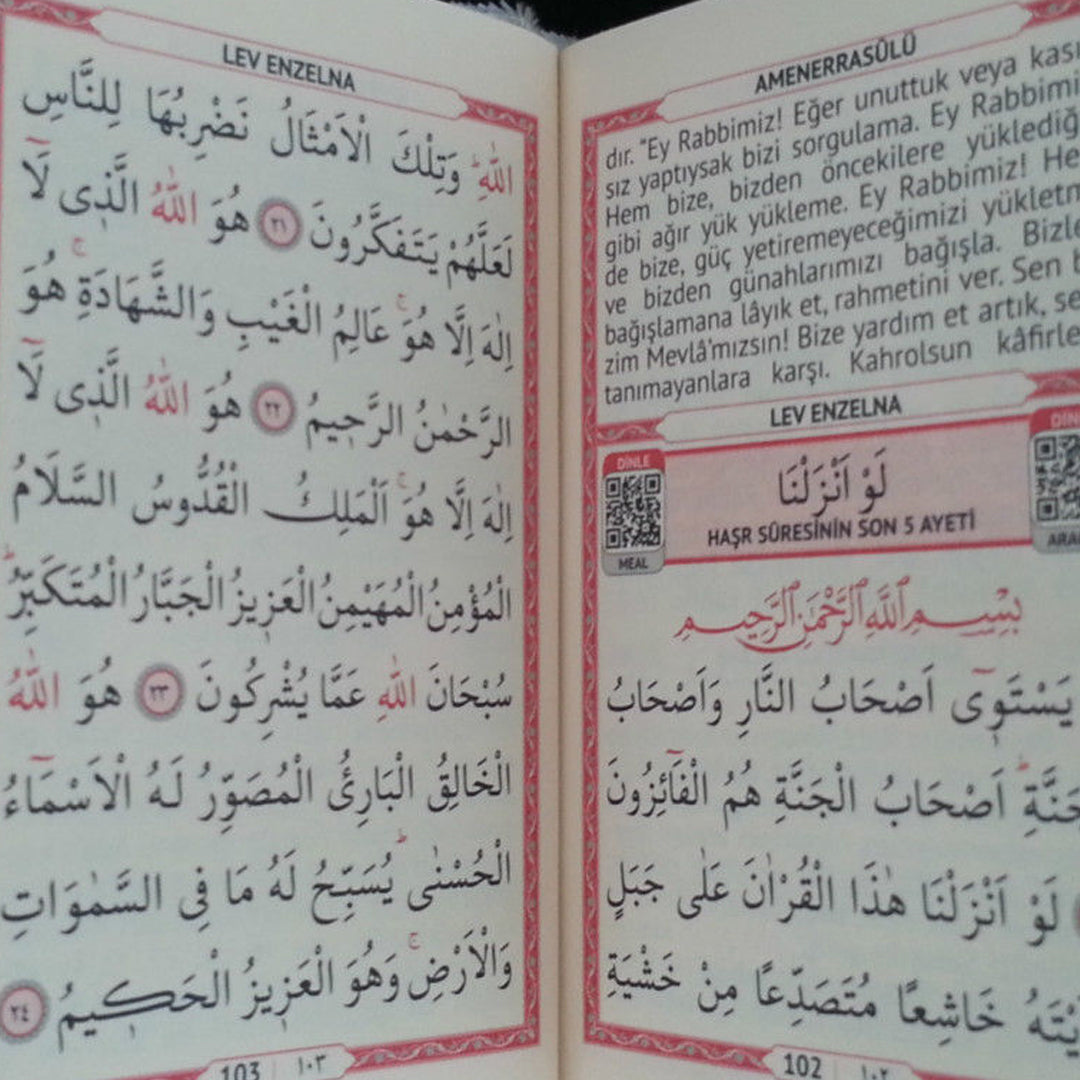 AMENERRASÛLÜ
dır. "Ey Rabbimiz! Eğer unuttuk veya kası
sız yaptıysak bizi sorgulama. Ey Rabbimi
Hem bize, bizden öncekilere yüklediğ
gibi ağır yük yükleme. Ey Rabbimiz! He
de bize, güç yetiremeyeceğimizi yükletm
ve bizden günahlarımızı bağışla. Bizle
bağışlamana lâyık et, rahmetini ver. Sen b
zim Mevlâ'mızsın! Bize yardım et artık, se
tanımayanlara karşı. Kahrolsun kâfirle
LEV ENZELNA
DİNLE
لَوْ اَنْزَلْنَا
HAŞR SÛRESİNİN SON 5 AYETİ
MEAL
بِسْمِ ٱللَّهِ ٱلرَّحْمَٰنِ ٱلرَّحِيمِ
يَسْتَوٖٓى اَصْحَابُ النَّارِ وَاَصْحَابُ
جَنَّةِۜ اَصْحَابُ الْجَنَّةِ هُمُ الْفَٓائِزُونَ
لَوْ اَنْزَلْنَا هٰذَا الْقُرْاٰنَ عَلٰى جَبَلٍ
يْتَهُ خَاشِعًا مُتَصَدِّعًا مِنْ خَشْيَةِ
102 ١٠٢
LEV ENZELNA
اللّٰهِۜ وَتِلْكَ الْاَمْثَالُ نَضْرِبُهَا لِلنَّاسِ
لَعَلَّهُمْ يَتَفَكَّرُونَ ﴿٢١﴾ هُوَ اللّٰهُ الَّذٖى لَٓا
اِلٰهَ اِلَّا هُوَۚ عَالِمُ الْغَيْبِ وَالشَّهَادَةِۚ هُوَ
الرَّحْمٰنُ الرَّحٖيمُ ﴿٢٢﴾ هُوَ اللّٰهُ الَّذٖى لَٓا
اِلٰهَ اِلَّا هُوَۚ اَلْمَلِكُ الْقُدُّوسُ السَّلَامُ
الْمُؤْمِنُ الْمُهَيْمِنُ الْعَزٖيزُ الْجَبَّارُ الْمُتَكَبِّرُۜ
سُبْحَانَ اللّٰهِ عَمَّا يُشْرِكُونَ ﴿٢٣﴾ هُوَ اللّٰهُ
الْخَالِقُ الْبَارِئُ الْمُصَوِّرُ لَهُ الْاَسْمَٓاءُ
الْحُسْنٰىۜ يُسَبِّحُ لَهُ مَا فِى السَّمٰوَاتِ
وَالْاَرْضِۚ وَهُوَ الْعَزٖيزُ الْحَكٖيمُ ﴿٢٤﴾
103 ١٠٣